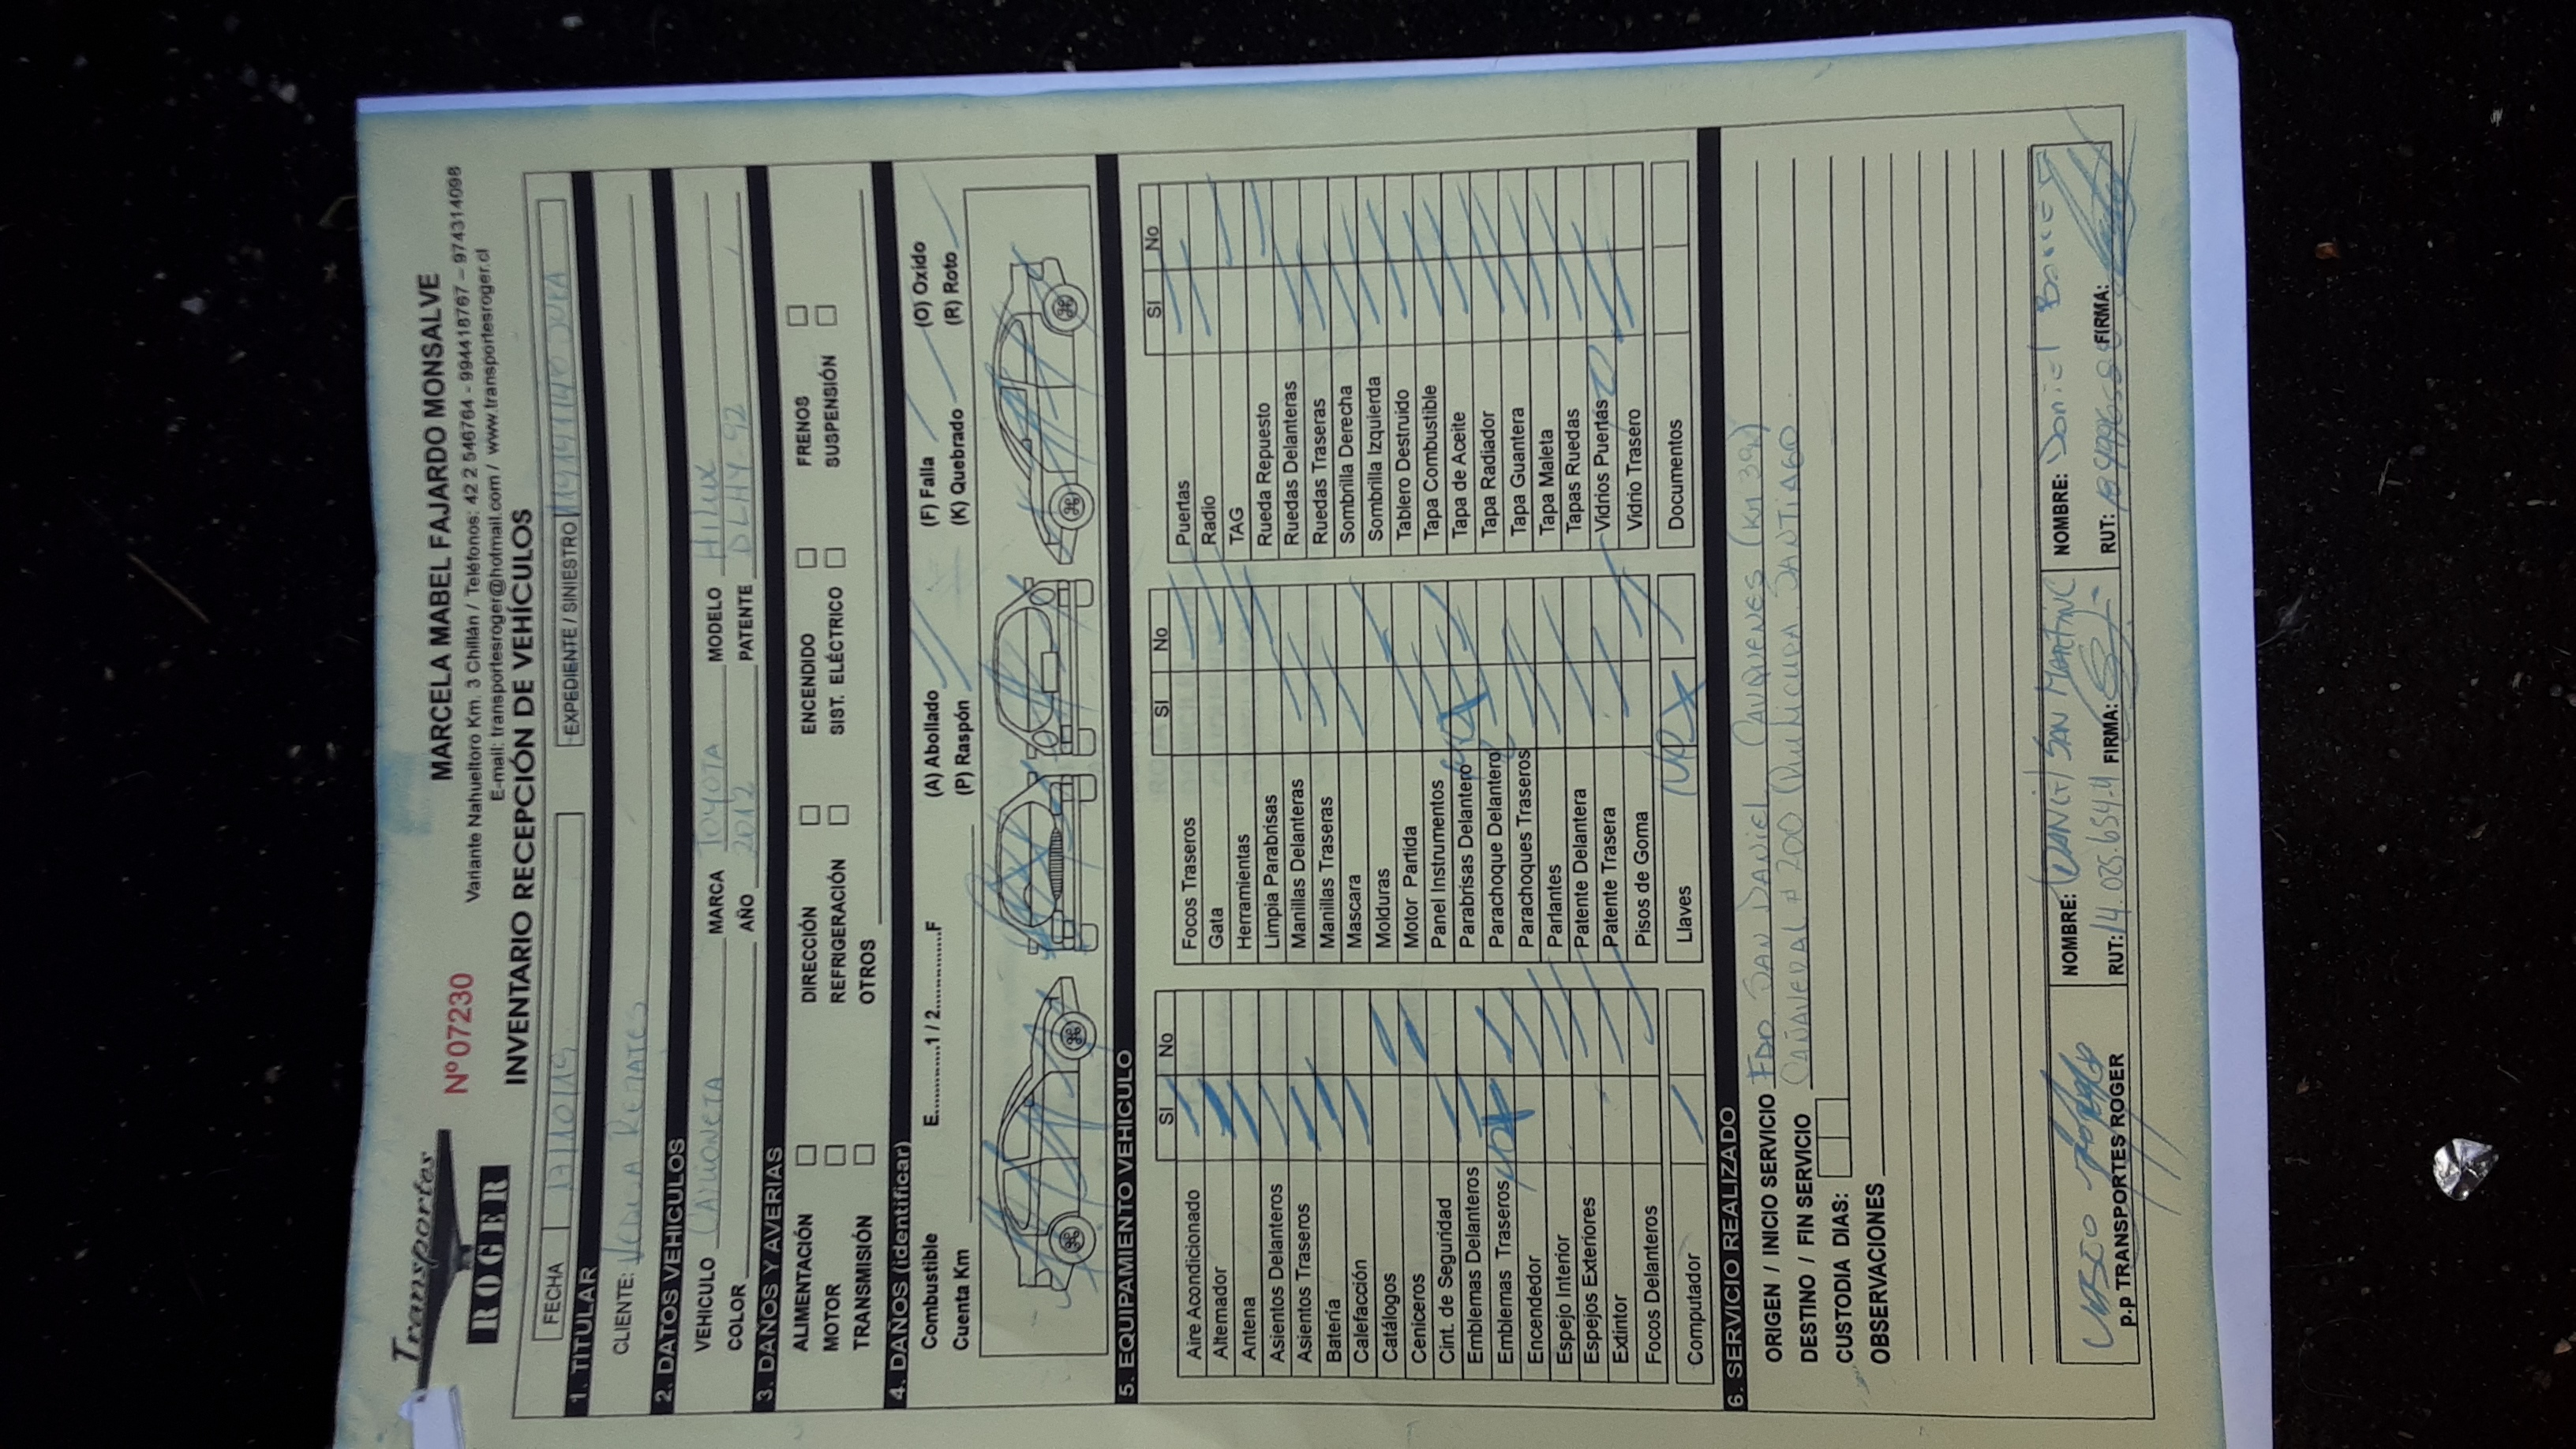 Transportes
ROGER
Nº 07230
MARCELA MABEL FAJARDO MONSALVE
Variante Nahueltoro Km. 3 Chillán / Teléfonos: 42 2 546764 - 994418767 – 974314098
E-mail: transportesroger@hotmail.com / www.transportesroger.cl
INVENTARIO RECEPCIÓN DE VEHÍCULOS
FECHA EXPEDIENTE / SINIESTRO
1. TITULAR
CLIENTE:
2. DATOS VEHICULOS
VEHICULO CAMIONETA MARCA TOYOTA MODELO HILUX
COLOR AÑO 2012 PATENTE DLHY-92
3. DAÑOS Y AVERIAS
ALIMENTACIÓN DIRECCIÓN ENCENDIDO FRENOS
MOTOR REFRIGERACIÓN SIST. ELÉCTRICO SUSPENSIÓN
TRANSMISIÓN OTROS
4. DAÑOS (identificar)
Combustible E............1 / 2............F (A) Abollado (F) Falla (O) Oxido
Cuenta Km (P) Raspón (K) Quebrado (R) Roto
5. EQUIPAMIENTO VEHICULO
SI No SI No SI No
Aire Acondicionado Focos Traseros Puertas
Alternador Gata Radio
Antena Herramientas TAG
Asientos Delanteros Limpia Parabrisas Rueda Repuesto
Asientos Traseros Manillas Delanteras Ruedas Delanteras
Batería Manillas Traseras Ruedas Traseras
Calefacción Mascara Sombrilla Derecha
Catálogos Molduras Sombrilla Izquierda
Ceniceros Motor Partida Tablero Destruido
Cint. de Seguridad Panel Instrumentos Tapa Combustible
Emblemas Delanteros Parabrisas Delantero Tapa de Aceite
Emblemas Traseros Parachoque Delantero Tapa Radiador
Encendedor Parachoques Traseros Tapa Guantera
Espejo Interior Parlantes Tapa Maleta
Espejos Exteriores Patente Delantera Tapas Ruedas
Extintor Patente Trasera Vidrios Puertas
Focos Delanteros Pisos de Goma Vidrio Trasero
Computador Llaves Documentos
6. SERVICIO REALIZADO
ORIGEN / INICIO SERVICIO FDO SAN DANIEL CAUQUENES
DESTINO / FIN SERVICIO CAÑAVERAL # 200 QUILICURA SANTIAGO
CUSTODIA DIAS:
OBSERVACIONES
NOMBRE: SAN MARTIN NOMBRE: Daniel
RUT: 14.025.654-4 FIRMA: RUT: FIRMA:
p.p TRANSPORTES ROGER